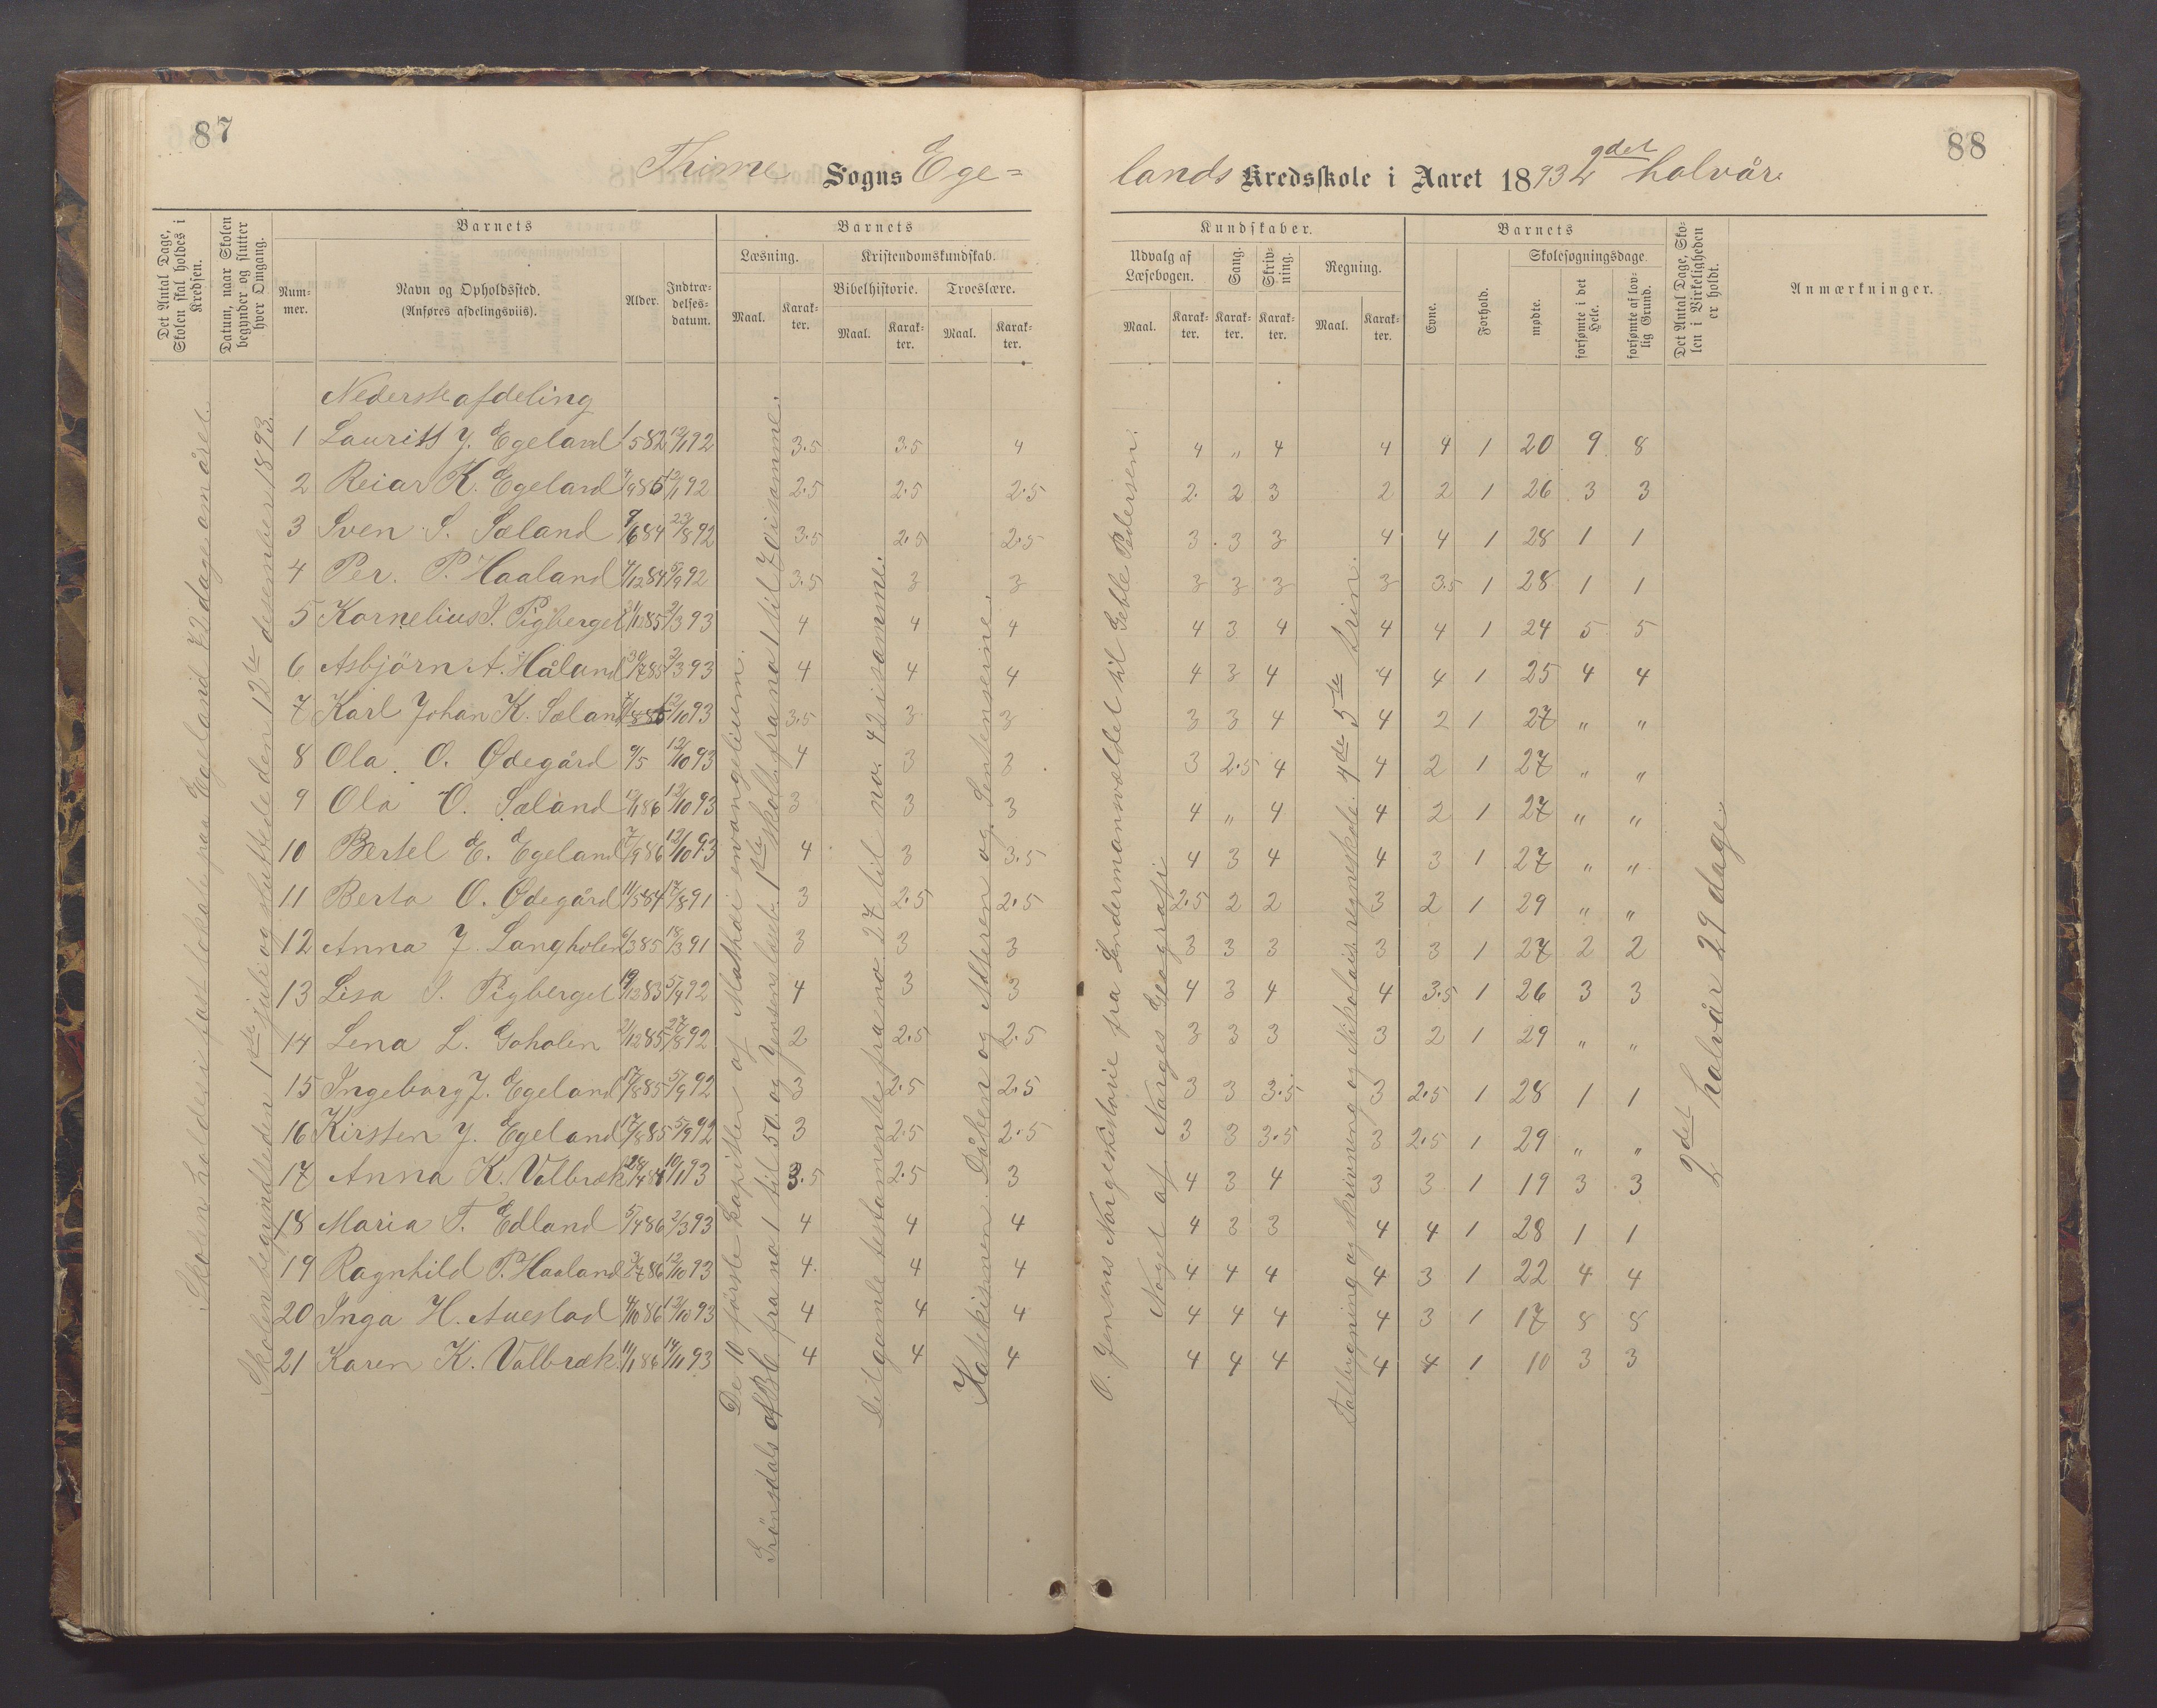 87
88
Thime Sogns Ege=
lands Kredsskole i Aaret 1893 2det halvår.
Det Antal Dage, Skolen skal holdes i Kredsen.
Datum, naar Skolen begynder og slutter hver Omgang.
Barnets
Num-mer.
Navn og Opholdssted.
(Anføres afdelingsviis).
Alder.
Indtræ-delses-datum.
Barnets
Læsning.
Maal.
Karak-ter.
Kristendomskundskab.
Bibelhistorie.
Maal.
Karak-ter.
Troeslære.
Maal.
Karak-ter.
Kundskaber.
Udvalg af Læsebogen.
Maal.
Karak-ter.
Sang.
Karak-ter.
Skriv-ning.
Karak-ter.
Regning.
Maal.
Karak-ter.
Barnets
Evne.
Forhold.
Skolesøgningsdage.
mødte.
forsømte i det Hele.
forsømte af lov-lig Grund.
Det Antal Dage, Sko-len i Virkeligheden er holdt.
Anmærkninger.
Skolen holdes i fast lokale paa Egeland 72 dage om året.
Skolen begyndte den 1ste juli og sluttede den 12te desember 1893.
De 10 første kapitler af Mathæi evangelium.
fra no 1 til 50 og Jensens læseb. 1ste skolta fra no 1 til 70 i samme.
Det gamle testamente fra no 27 til no. 42 i samme.
Katekismen. Dåben og Alteren og Sentenserne.
O. Jensens Norgeshistorie fra Sendermannvældet til Geble Pedersen.
Noget af Norges Geografi
Talbygning og skrivning og Nikolais. regneskole. 4de 5te trin.
2det halvår 29 dage
Nederste afdeling
1 Lauritz J. Egeland 1/5 82 12/1 92 3.5 3.5 4 4 „ 4 4 4 1 20 9 8
2 Reiar K. Egeland 4/9 85 12/1 92 2.5 2.5 2.5 2. 2 3 2 2 1 26 3 3
3 Sven S. Sæland 9/6 84 23/8 92 3.5 2.5 2.5 3 3 3 4 4 1 28 1 1
4 Per. P. Haaland 4/12 84 5/9 92 3.5 3 3 3 3 3 3 3.5 1 28 1 1
5 Kornelius S. Pigberget 21/11 85 2/3 93 4 4 4 4 3 4 4 4 1 24 5 5
6 Asbjörn A. Håland 30/7 85 2/3 93 4 4 4 4 3 4 4 4 1 25 4 4
7 Karl Johan K. Sæland 12/10 93 3.5 3 3 3 3 4 4 2 1 27 „ „
8 Ola O. Ødegård 9/5 12/10 93 4 3 3 3 2.5 4 4 2 1 27 „ „
9 Ola O. Sæland 12/1 86 12/10 93 3 3 3 4 „ 4 4 2 1 27 „ „
10 Bertel E. Egeland 7/9 86 12/10 93 4 3 3.5 4 3 4 4 3 1 27 „ „
11 Berta O. Ødegård 11/5 84 17/8 91 3 2.5 2.5 2.5 2 2 3 2 1 29 „ „
12 Anna J. Langholen 6/3 85 18/3 91 3 3 3 3 3 3 3 3 1 27 2 2
13 Lisa S. Pigberget 19/12 83 5/4 92 4 3 3 4 3 4 4 3.5 1 26 3 3
14 Lena L. Goholen 2/12 85 27/8 92 2 2.5 2.5 3 3 3 3 2 1 29 „ „
15 Ingeborg J. Egeland 17/8 85 5/9 92 3 2.5 2.5 3 3 3.5 3 2.5 1 28 1 1
16 Kirsten J. Egeland 17/8 85 5/9 92 3 2.5 2.5 3 3 3.5 3 2.5 1 29 „ „
17 Anna K. Valbræk 28/4 84 10/1 93 3.5 2.5 3 4 3 4 3 3 1 19 3 3
18 Maria T. Edland 5/4 86 2/3 93 4 4 4 4 3 3 4 4 1 28 1 1
19 Ragnhild P. Haaland 3/7 86 12/10 93 4 4 4 4 4 4 4 3 1 22 4 4
20 Inga H. Auestad 4/10 86 12/10 93 4 4 4 4 4 4 4 3 1 17 8 8
21 Karen K. Valbræk. 11/1 86 14/11 93 4 4 4 4 4 4 4 4 1 10 3 3